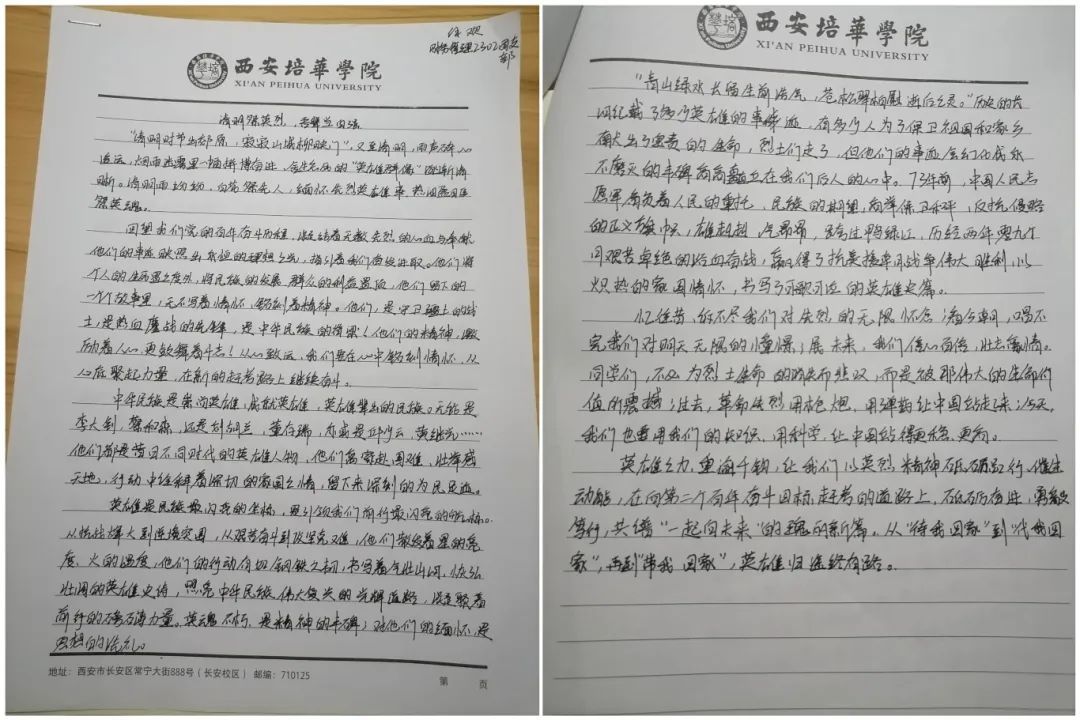 西安培華學院
XI'AN PEIHUA UNIVERSITY
清明祭英烈，吾辈当自强
"清明时节出郊原，寂寂山城柳映门"，又至清明，雨声碎心
晰。清明雨纷纷，白花祭先人，缅怀先烈英雄事，热泪盈眶
祭英魂。
回望我们党的百年奋斗历程，凝结着无数先烈的心血与奉献
他们的事迹映照出永恒的理想之光，指引着我们奋勇进取。他们将
个人的生死置之度外，将民族的发展 群众的利益置顶，他们留下的
一个个故事里，无不写着情怀、镌刻着精神。他们，是守卫疆土的战
士，是热血鏖战的先锋，是中华民族的脊梁！他们的精神，激
励着人心 更鼓舞着斗志！从心致远，我们要在心中镌刻情怀，从
心底聚起力量，在新的赶考路上继续奋斗。
中华民族是崇尚英雄，成就英雄，英雄辈出的民族。无论是
李大钊，蔡和森，还是刘胡兰，董存瑞，亦或是邱少云 黄继光……
他们都是昔日不同时代的英雄人物，他们离家赴国难，壮举感
天地，行动中诠释着深切的家国之情，留下来深刻的为民足迹。
英雄是民族最闪亮的坐标，是引领我们前行最闪亮的航标。
从抗战烽火到连接突围，从艰苦奋斗到攻坚克难，他们散发着星的亮
度、火的温度，他们的行动有如钢铁之韧，书写着气壮山河，恢弘
壮阔的英雄史诗，照亮中华民族伟大复兴的光辉道路，凝聚着
前行的磅礴力量。英魂不朽，是精神的丰碑；对他们的缅怀，是
思想的洗礼。
地址：西安市长安区常宁大街888号（长安校区） 邮编：710125
第 页
西安培華學院
XI'AN PEIHUA UNIVERSITY
"青山绿水长留生前浩气，苍松翠柏堪慰逝后之灵。"历史的长
河记载了多少英雄的事迹，有多少人为了保卫祖国和家乡
献出了宝贵的生命，烈士们走了，但他们的事迹会幻化成永
不磨灭的丰碑高高矗立在我们后人的心中。73年前，中国人民志
愿军肩负着人民的重托、民族的期望，高举保卫和平、反抗侵略
的正义旗帜，雄赳赳、气昂昂，跨过鸭绿江，历经两年零九个
月艰苦卓绝的浴血奋战，赢得了抗美援朝战争伟大胜利，以
炽热的家国情怀，书写了可歌可泣的英雄史篇。
忆往昔，诉不尽我们对先烈的无限怀念；看今朝，唱不
完我们对明天无限的憧憬；展未来，我们信心百倍，壮志豪情。
同学们，不必为烈士生命的消失而悲叹，而是被那伟大的生命价
值所震撼；过去，革命先烈用枪炮、用弹药让中国站起来；今天，
我们也要用我们的知识、用科学，让中国站得更稳、更高。
英雄之力，重逾千钧，让我们以英烈精神砥砺品行、催生
动能，在向第二个百年奋斗目标赶考的道路上，砥砺奋进，勇毅
笃行，共谱"一起向未来"的瑰丽新篇。从"待我回家"到"代我回
家"，再到"带我回家"，英雄归途终有路。